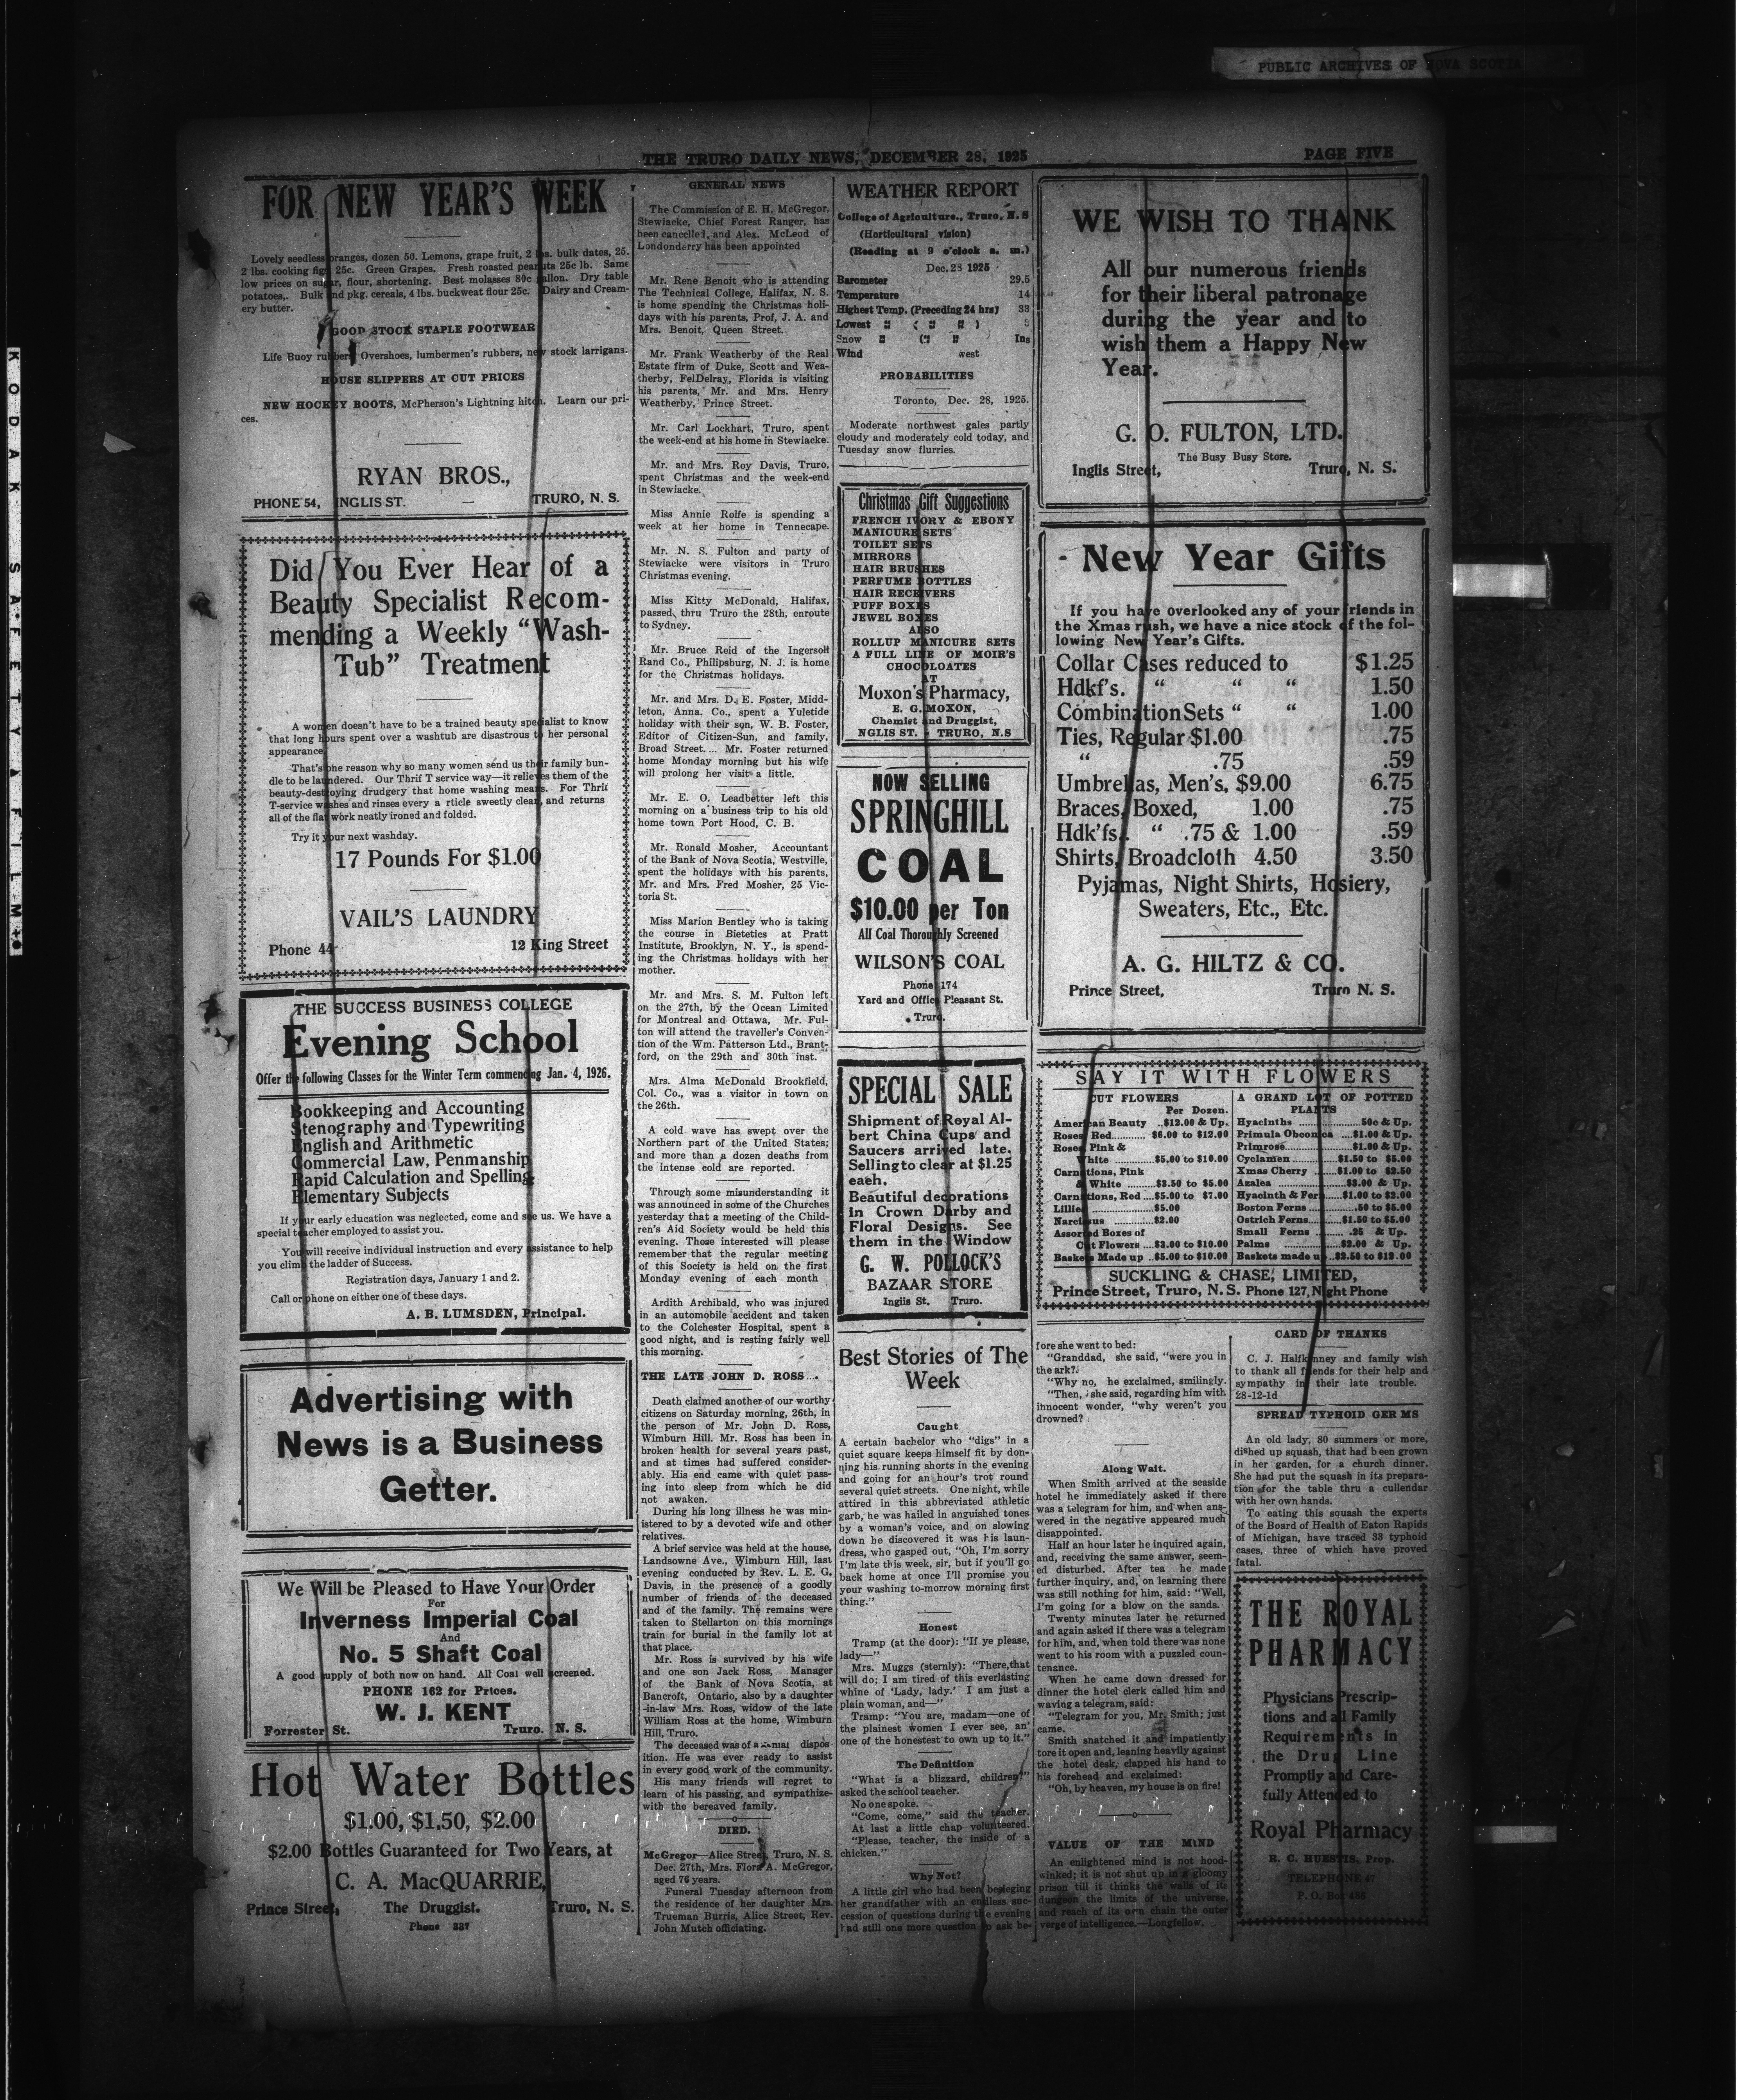 PUBLIC ARCHIVES OF NOVA SCOTIA
KODAK SAFETY FILM
THE TRURO DAILY NEWS, DECEMBER 28, 1925
PAGE FIVE
FOR NEW YEAR'S WEEK
Lovely seedless oranges, dozen 50. Lemons, grape fruit, 2 lbs. bulk dates, 25.
2 lbs. cooking figs 25c. Green Grapes. Fresh roasted peanuts 25c lb. Same
low prices on sugar, flour, shortening. Best molasses 80c gallon. Dry table
potatoes,. Bulk and pkg. cereals, 4 lbs. buckweat flour 25c. Dairy and Cream-
ery butter.
GOOD STOCK STAPLE FOOTWEAR
Life Buoy rubbers Overshoes, lumbermen's rubbers, new stock larrigans.
HOUSE SLIPPERS AT CUT PRICES
NEW HOCKEY BOOTS, McPherson's Lightning hitch. Learn our pri-
ces.
RYAN BROS.,
PHONE 54, INGLIS ST. — TRURO, N. S.
Did You Ever Hear of a
Beauty Specialist Recom-
mending a Weekly "Wash-
Tub" Treatment
A women doesn't have to be a trained beauty specialist to know
that long hours spent over a washtub are disastrous to her personal
appearance
That's one reason why so many women send us their family bun-
dle to be laundered. Our Thrif T service way—it relieves them of the
beauty-destroying drudgery that home washing means. For Thrif
T-service washes and rinses every a rticle sweetly clean, and returns
all of the flat work neatly ironed and folded.
Try it your next washday.
17 Pounds For $1.00
VAIL'S LAUNDRY
Phone 44 12 King Street
THE SUCCESS BUSINESS COLLEGE
Evening School
Offer the following Classes for the Winter Term commencing Jan. 4, 1926.
Bookkeeping and Accounting
Stenography and Typewriting
English and Arithmetic
Commercial Law, Penmanship
Rapid Calculation and Spelling
Elementary Subjects
If your early education was neglected, come and see us. We have a
special teacher employed to assist you.
You will receive individual instruction and every assistance to help
you climb the ladder of Success.
Registration days, January 1 and 2.
Call or phone on either one of these days.
A. B. LUMSDEN, Principal.
Advertising with
News is a Business
Getter.
We Will be Pleased to Have Your Order
For
Inverness Imperial Coal
And
No. 5 Shaft Coal
A good supply of both now on hand. All Coal well screened.
PHONE 162 for Prices.
W. J. KENT
Forrester St. Truro. N. S.
Hot Water Bottles
$1.00, $1.50, $2.00
$2.00 Bottles Guaranteed for Two Years, at
C. A. MacQUARRIE,
Prince Street, The Druggist. Truro, N. S.
Phone 337
GENERAL NEWS
The Commission of E. H. McGregor,
Stewiacke, Chief Forest Ranger, has
been cancelled, and Alex. McLeod of
Londonderry has been appointed
Mr. Rene Benoit who is attending
The Technical College, Halifax, N. S.
is home spending the Christmas holi-
days with his parents, Prof, J. A. and
Mrs. Benoit, Queen Street.
Mr. Frank Weatherby of the Real
Estate firm of Duke, Scott and Wea-
therby, FelDelray, Florida is visiting
his parents, Mr. and Mrs. Henry
Weatherby, Prince Street.
Mr. Carl Lockhart, Truro, spent
the week-end at his home in Stewiacke.
Mr. and Mrs. Roy Davis, Truro,
spent Christmas and the week-end
in Stewiacke.
Miss Annie Rolfe is spending a
week at her home in Tennecape.
Mr. N. S. Fulton and party of
Stewiacke were visitors in Truro
Christmas evening.
Miss Kitty McDonald, Halifax,
passed thru Truro the 28th, enroute
to Sydney.
Mr. Bruce Reid of the Ingersoll
Rand Co., Philipsburg, N. J. is home
for the Christmas holidays.
Mr. and Mrs. D. E. Foster, Midd-
leton, Anna. Co., spent a Yuletide
holiday with their son, W. B. Foster,
Editor of Citizen-Sun, and family,
Broad Street.... Mr. Foster returned
home Monday morning but his wife
will prolong her visit a little.
Mr. E. O. Leadbetter left this
morning on a business trip to his old
home town Port Hood, C. B.
Mr. Ronald Mosher, Accountant
of the Bank of Nova Scotia, Westville,
spent the holidays with his parents,
Mr. and Mrs. Fred Mosher, 25 Vic-
toria St.
Miss Marion Bentley who is taking
the course in Bietetics at Pratt
Institute, Brooklyn, N. Y., is spend-
ing the Christmas holidays with her
mother.
Mr. and Mrs. S. M. Fulton left
on the 27th, by the Ocean Limited
for Montreal and Ottawa, Mr. Ful-
ton will attend the traveller's Conven-
tion of the Wm. Patterson Ltd., Brant-
ford, on the 29th and 30th inst.
Mrs. Alma McDonald Brookfield,
Col. Co., was a visitor in town on
the 26th.
A cold wave has swept over the
Northern part of the United States;
and more than a dozen deaths from
the intense cold are reported.
Through some misunderstanding it
was announced in some of the Churches
yesterday that a meeting of the Child-
ren's Aid Society would be held this
evening. Those interested will please
remember that the regular meeting
of this Society is held on the first
Monday evening of each month
Ardith Archibald, who was injured
in an automobile accident and taken
to the Colchester Hospital, spent a
good night, and is resting fairly well
this morning.
THE LATE JOHN D. ROSS...
Death claimed another of our worthy
citizens on Saturday morning, 26th, in
the person of Mr. John D. Ross,
Wimburn Hill. Mr. Ross has been in
broken health for several years past,
and at times had suffered consider-
ably. His end came with quiet pass-
ing into sleep from which he did
not awaken.
During his long illness he was min-
istered to by a devoted wife and other
relatives.
A brief service was held at the house,
Landsowne Ave., Wimburn Hill, last
evening conducted by Rev. L. E. G.
Davis, in the presence of a goodly
number of friends of the deceased
and of the family. The remains were
taken to Stellarton on this mornings
train for burial in the family lot at
that place.
Mr. Ross is survived by his wife
and one son Jack Ross, Manager
of the Bank of Nova Scotia, at
Bancroft, Ontario, also by a daughter
-in-law Mrs. Ross, widow of the late
William Ross at the home, Wimburn
Hill, Truro.
The deceased was of a dispos
ition. He was ever ready to assist
in every good work of the community.
His many friends will regret to
learn of his passing, and sympathize-
with the bereaved family.
DIED.
McGregor—Alice Street, Truro, N. S.
Dec. 27th, Mrs. Flora A. McGregor,
aged 76 years.
Funeral Tuesday afternoon from
the residence of her daughter Mrs.
Trueman Burris, Alice Street, Rev.
John Mutch officiating.
WEATHER REPORT
College of Agriculture., Truro, N. S
(Horticultural vision)
(Reading at 9 o'clock a. m.)
Dec. 28 1925
Barometer 29.5
Temperature 14
Highest Temp. (Preceding 24 hrs) 33
Lowest " ( " " )
Snow " (" " Ins
Wind west
PROBABILITIES
Toronto, Dec. 28, 1925.
Moderate northwest gales partly
cloudy and moderately cold today, and
Tuesday snow flurries.
Christmas Gift Suggestions
FRENCH IVORY & EBONY
MANICURE SETS
TOILET SETS
MIRRORS
HAIR BRUSHES
PERFUME BOTTLES
HAIR RECEIVERS
PUFF BOXES
JEWEL BOXES
ALSO
ROLLUP MANICURE SETS
A FULL LINE OF MOIR'S
CHOCOLOATES
AT
Moxon's Pharmacy,
E. G. MOXON,
Chemist and Druggist,
NGLIS ST. - TRURO, N.S
NOW SELLING
SPRINGHILL
COAL
$10.00 per Ton
All Coal Thoroughly Screened
WILSON'S COAL
Phone 174
Yard and Office Pleasant St.
Truro.
SPECIAL SALE
Shipment of Royal Al-
bert China Cups and
Saucers arrived late.
Selling to clear at $1.25
each.
Beautiful decorations
in Crown Darby and
Floral Designs. See
them in the Window
G. W. POLLOCK'S
BAZAAR STORE
Inglis St. Truro.
Best Stories of The
Week
Caught
A certain bachelor who "digs" in a
quiet square keeps himself fit by don-
ning his running shorts in the evening
and going for an hour's trot round
several quiet streets. One night, while
attired in this abbreviated athletic
garb, he was hailed in anguished tones
by a woman's voice, and on slowing
down he discovered it was his laun-
dress, who gasped out, "Oh, I'm sorry
I'm late this week, sir, but if you'll go
back home at once I'll promise you
your washing to-morrow morning first
thing."
Honest
Tramp (at the door): "If ye please,
lady—"
Mrs. Muggs (sternly): "There,that
will do; I am tired of this everlasting
whine of 'Lady, lady.' I am just a
plain woman, and—"
Tramp: "You are, madam—one of
the plainest women I ever see, an'
one of the honestest to own up to it."
The Definition
"What is a blizzard, children?"
asked the school teacher.
No one spoke.
"Come, come," said the teacher.
At last a little chap volunteered.
"Please, teacher, the inside of a
chicken."
Why Not?
A little girl who had been besieging
her grandfather with an endless suc-
cession of questions during the evening
had still one more question to ask be-
fore she went to bed:
"Granddad, she said, "were you in
the ark?
"Why no, he exclaimed, smilingly.
"Then, she said, regarding him with
innocent wonder, "why weren't you
drowned?
Along Wait.
When Smith arrived at the seaside
hotel he immediately asked if there
was a telegram for him, and when ans-
wered in the negative appeared much
disappointed.
Half an hour later he inquired again,
and, receiving the same answer, seem-
ed disturbed. After tea he made
further inquiry, and, on learning there
was still nothing for him, said: "Well,
I'm going for a blow on the sands.
Twenty minutes later he returned
and again asked if there was a telegram
for him, and, when told there was none
went to his room with a puzzled coun-
tenance.
When he came down dressed for
dinner the hotel clerk called him and
waving a telegram, said:
"Telegram for you, Mr. Smith; just
came.
Smith snatched it and impatiently
tore it open and, leaning heavily against
the hotel desk, clapped his hand to
his forehead and exclaimed:
"Oh, by heaven, my house is on fire!
VALUE OF THE MIND
An enlightened mind is not hood-
winked; it is not shut up in a gloomy
prison till it thinks the walls of its
dungeon the limits of the universe,
and reach of its own chain the outer
verge of intelligence.—Longfellow.
WE WISH TO THANK
All our numerous friends
for their liberal patronage
during the year and to
wish them a Happy New
Year.
G. O. FULTON, LTD.
The Busy Busy Store.
Inglis Street, Truro, N. S.
New Year Gifts
If you have overlooked any of your friends in
the Xmas rush, we have a nice stock of the fol-
lowing New Year's Gifts.
Collar Cases reduced to $1.25
Hdkf's. " " " 1.50
Combination Sets " " 1.00
Ties, Regular $1.00 .75
" .75 .59
Umbrellas, Men's, $9.00 6.75
Braces, Boxed, 1.00 .75
Hdk'fs. " .75 & 1.00 .59
Shirts, Broadcloth 4.50 3.50
Pyjamas, Night Shirts, Hosiery,
Sweaters, Etc., Etc.
A. G. HILTZ & CO.
Prince Street, Truro N. S.
SAY IT WITH FLOWERS
CUT FLOWERS
Per Dozen.
American Beauty ..$12.00 & Up.
Roses Red........... $6.00 to $12.00
Roses Pink &
White ............$5.00 to $10.00
Carnations, Pink
& White ........$3.50 to $5.00
Carnations, Red ....$5.00 to $7.00
Lillies ..................$5.00
Narcissus .............$2.00
Assorted Boxes of
Cut Flowers ....$3.00 to $10.00
Baskets Made up ..$5.00 to $10.00
A GRAND LOT OF POTTED
PLANTS
Hyacinths ..................50c & Up.
Primula Obconica ....$1.00 & Up.
Primrose..................$1.00 & Up.
Cyclamen............$1.50 to $5.00
Xmas Cherry .......$1.00 to $2.50
Azalea ..................$3.00 & Up.
Hyacinth & Fern.....$1.00 to $2.00
Boston Ferns .............50 to $5.00
Ostrich Ferns.........$1.50 to $5.00
Small Ferns ........ .25 & Up.
Palms ............$2.00 & Up.
Baskets made up ..$2.50 to $12.00
SUCKLING & CHASE, LIMITED,
Prince Street, Truro, N. S. Phone 127, Night Phone
CARD OF THANKS
C. J. Halfkenney and family wish
to thank all friends for their help and
sympathy in their late trouble.
28-12-1d
SPREAD TYPHOID GERMS
An old lady, 80 summers or more,
dished up squash, that had been grown
in her garden, for a church dinner.
She had put the squash in its prepara-
tion for the table thru a cullendar
with her own hands.
To eating this squash the experts
of the Board of Health of Eaton Rapids
of Michigan, have traced 33 typhoid
cases, three of which have proved
fatal.
THE ROYAL
PHARMACY
Physicians Prescrip-
tions and all Family
Requirements in
the Drug Line
Promptly and Care-
fully Attended to
Royal Pharmacy
R. C. HUESTIS, Prop.
TELEPHONE 47
P. O. Box 456